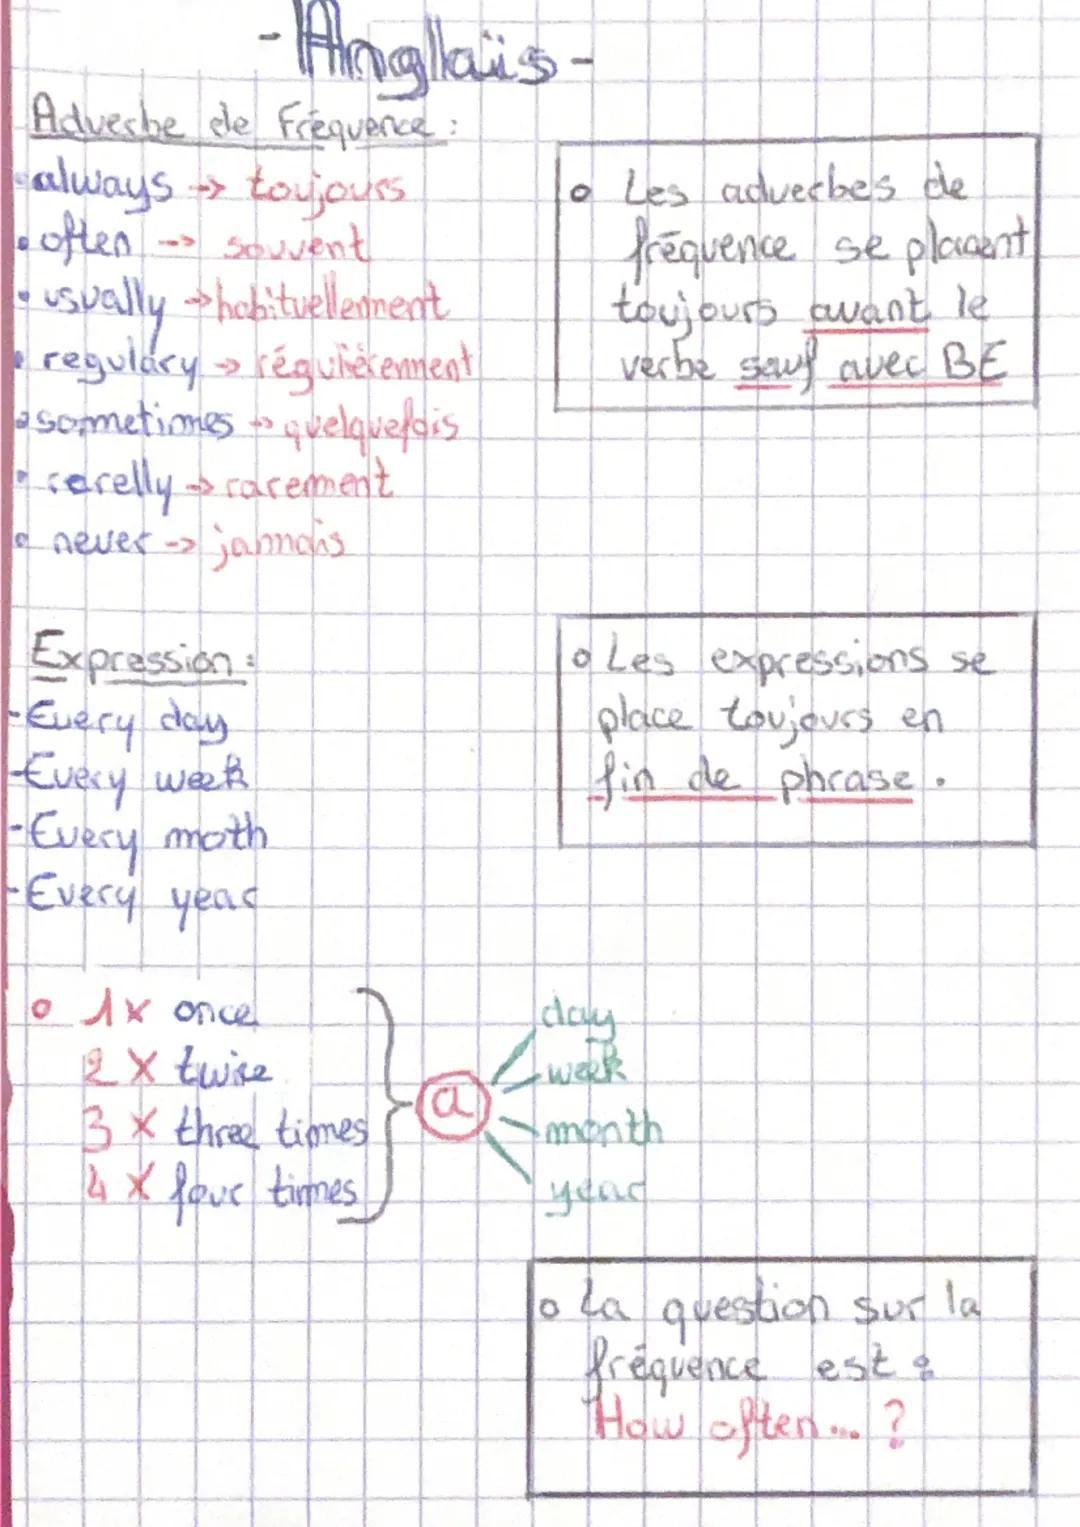 - Anglais -
Adverbe de Fréquence :
• always → toujours
• often --> souvent
• usually → habituellement
• regulary → régulièrement
• sometimes → quelquefois
• rarelly → rarement
• never → jamais
• Les adverbes de
fréquence se placent
toujours avant le
verbe sauf avec BE
Expression :
- Every day
- Every week
- Every moth
- Every year
• Les expressions se
place toujours en
fin de phrase.
• 1x once
2 X twise
3 X three times
4 X four times
a
day
week
month
year
• La question sur la
fréquence est :
How often... ?